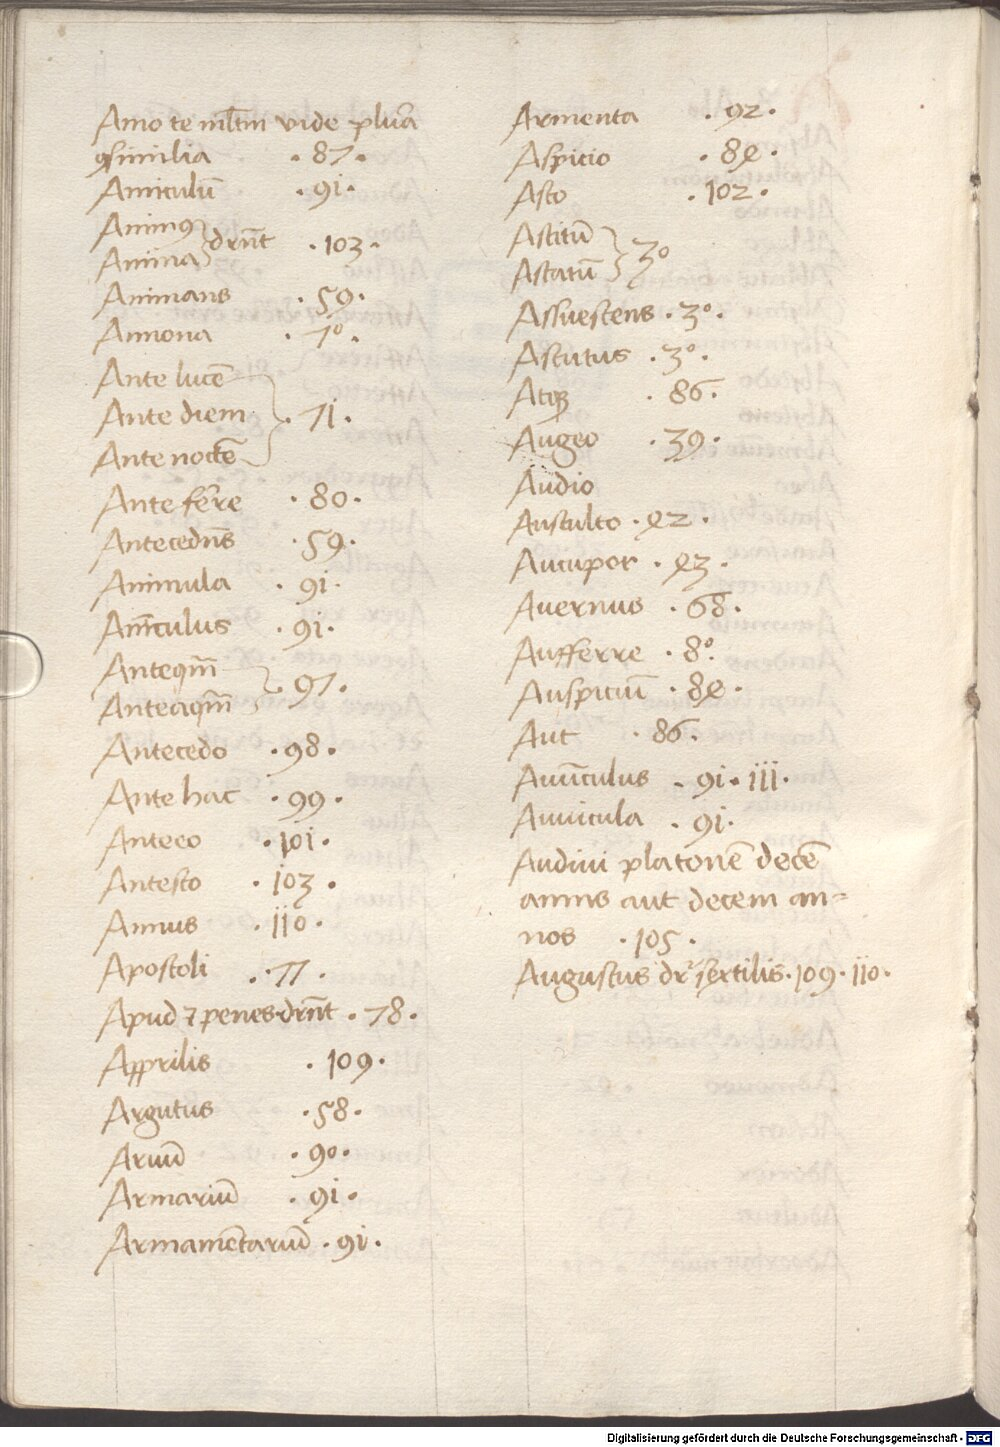 Amo te mltm vide plura
qsimilia · 87 ·
Amiculū · 91 ·
Animus
Anima drnt · 103 ·
Animans · 59 ·
Annona · 7º ·
Ante lucē
Ante diem · 71 ·
Ante noctē
Ante ferre · 80 ·
Antecedns · 59 ·
Animula · 91 ·
Amculus · 91 ·
Anteqm̄
Anteaqm̄ · 97 ·
Antecedo · 98 ·
Ante hac · 99 ·
Anteeo · 101 ·
Antesto · 103 ·
Annus · 110 ·
Apostoli · 77 ·
Apud 7 penes drnt · 78 ·
Apprilis · 109 ·
Argutus · 58 ·
Aruū · 90 ·
Armariū · 91 ·
Armamētariū · 91 ·
Armenta · 92 ·
Aspicio · 8e ·
Asto · 102 ·
Astitū
Astatū 3º
Assuescens · 3º ·
Astutus · 3º ·
Atq · 86 ·
Augeo · 39 ·
Audio
Ausculto · e2 ·
Aucupor · e3 ·
Auernus · 68 ·
Aufferre · 8º ·
Auspiciū · 8e ·
Aut · 86 ·
Auūculus · 91 · 111 ·
Auuicula · 91 ·
Audiui platonē decē
annis aut decem an=
nos · 105 ·
Augustus dr sextilis · 109 · 110 ·
Digitalisierung gefördert durch die Deutsche Forschungsgemeinschaft - DFG